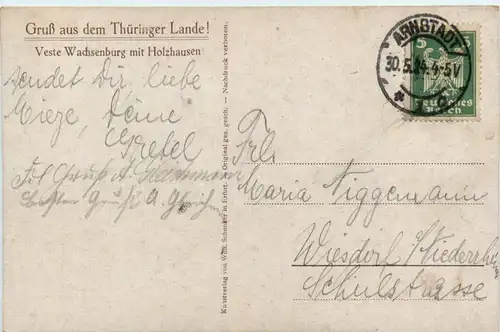 Gruß aus dem Thüringer Lande!
Veste Wachsenburg mit Holzhausen
sendet Dir, liebe
Mieze, Deine
Gretel
Gruß A.
Gruß A.
Kunstverlag von Wilh. Schenker in Erfurt. – Original ges. gesch. – Nachdruck verboten.
ARNSTADT
30.5. 4-5V
5 5
Deutsches
Reich
Frl.
Maria Niggemann
Wiesdorf /Niederrhein
Schulstrasse